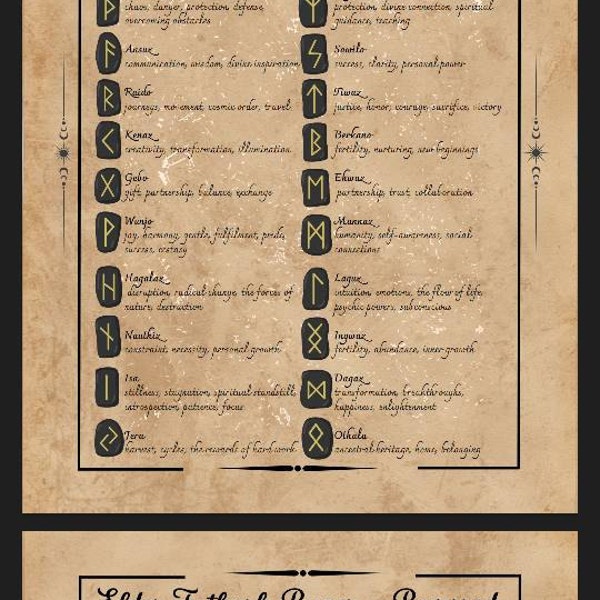 chaos, danger, protection, defense,
overcoming obstacles
Ansuz
communication, wisdom, divine inspiration
Raido
journeys, movement, cosmic order, travel
Kenaz
creativity, transformation, illumination
Gebo
gift, partnership, balance, exchange
Wunjo
joy, harmony, gentle, fulfillment, pride,
success, ecstasy
Hagalaz
disruption, radical change, the forces of
nature, destruction
Nauthiz
constraint, necessity, personal growth
Isa
stillness, stagnation, spiritual standstill,
introspection, patience, focus
Jera
harvest, cycles, the rewards of hard work
protection, divine connection, spiritual
guidance, teaching
Sowilo
success, clarity, personal power
Tiwaz
justice, honor, courage, sacrifice, victory
Berkano
fertility, nurturing, new beginnings
Ehwaz
partnership, trust, collaboration
Mannaz
humanity, self-awareness, social
connections
Laguz
intuition, emotions, the flow of life,
psychic powers, subconscious
Ingwaz
fertility, abundance, inner growth
Dagaz
transformation, breakthroughs,
happiness, enlightenment
Othala
ancestral heritage, home, belonging